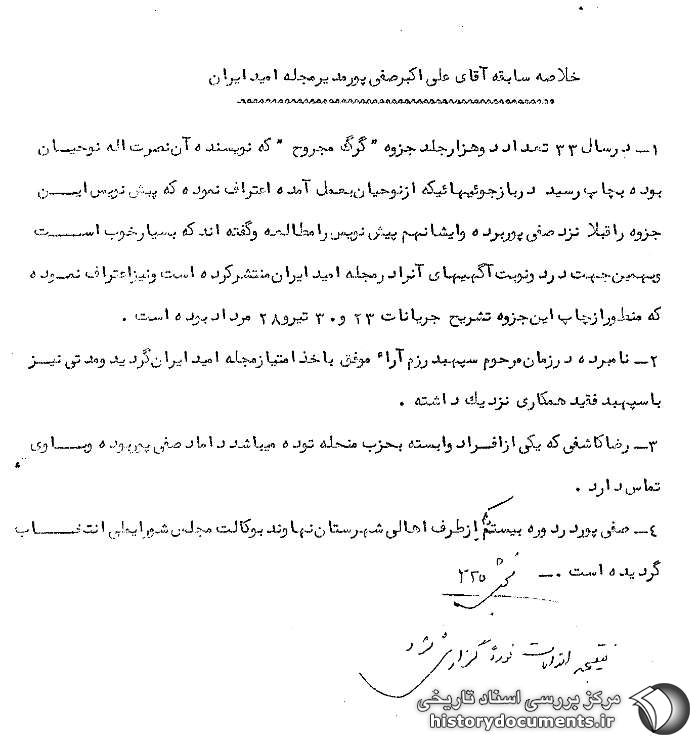 خلاصه سابقه آقای علی اکبرصفی پورمدیرمجله امید ایران
۱ــ درسال ۳۳ تعداد دوهزارجلد جزوه "گرگ مجروح " که نویسنده آن نصرت اله نوحیان
بوده بچاپ رسید درباز جوئیهائیکه ازنوحیان بعمل آمده اعتراف نموده که پیش نویس ایـن
جزوه را قبلا نزد صفی پوربرده وایشانهم پیش نویس رامطالعه وگفته اند که بسیارخوب اســـت
وبهمین جهت دردونوبت آگهیهای آنرادرمجله امید ایران منتشرکرده است ونیزاعتراف نمـوده
که منظورازچاپ این جزوه تشریح جریانات ۲۳ و۳۰ تیرو۲۸ مرداد بوده است .
۲ــ نامبرده درزمان مرحوم سپهبد رزم آراء موفق باخذ امتیازمجله امید ایران گردید ومدتی نیـز
باسپهبد فقید همکاری نزدیك داشته .
۳ــ رضاکاشفی که یکی ازافراد وابسته بحزب منحله توده میباشد داماد صفی پوربوده وبـــاوی
تماس دارد .
۴ــ صفی پوردردوره بیستم ازطرف اهالی شهرستان نهاوند بوکالت مجلس شورایملی انتخــــاب
گردیده است .ــ
۳۲۵
نتیجه اقدامات فوراً گزارش شود
مرکز بررسی اسناد تاریخی
historydocuments.ir